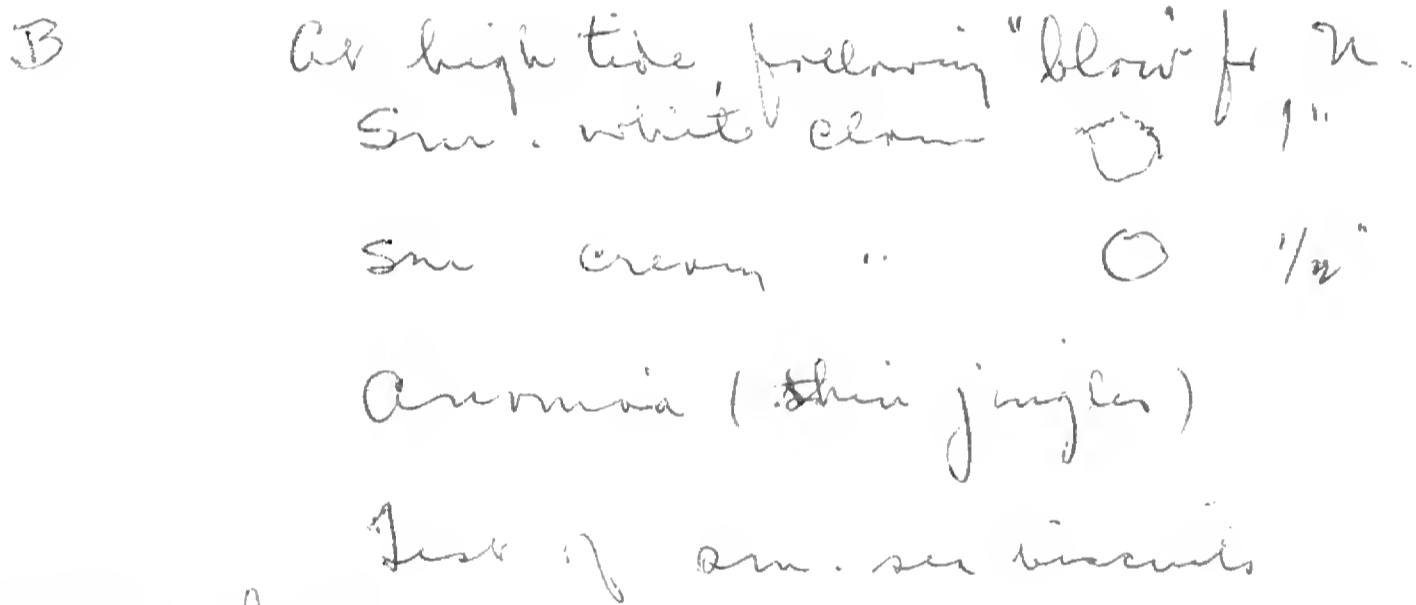 B At high tide, following "blow" fr N.
Sm. white clam 1"
Sm cream " 1/2"
Anomia (thin jingles)
Test of sm. sea biscuits